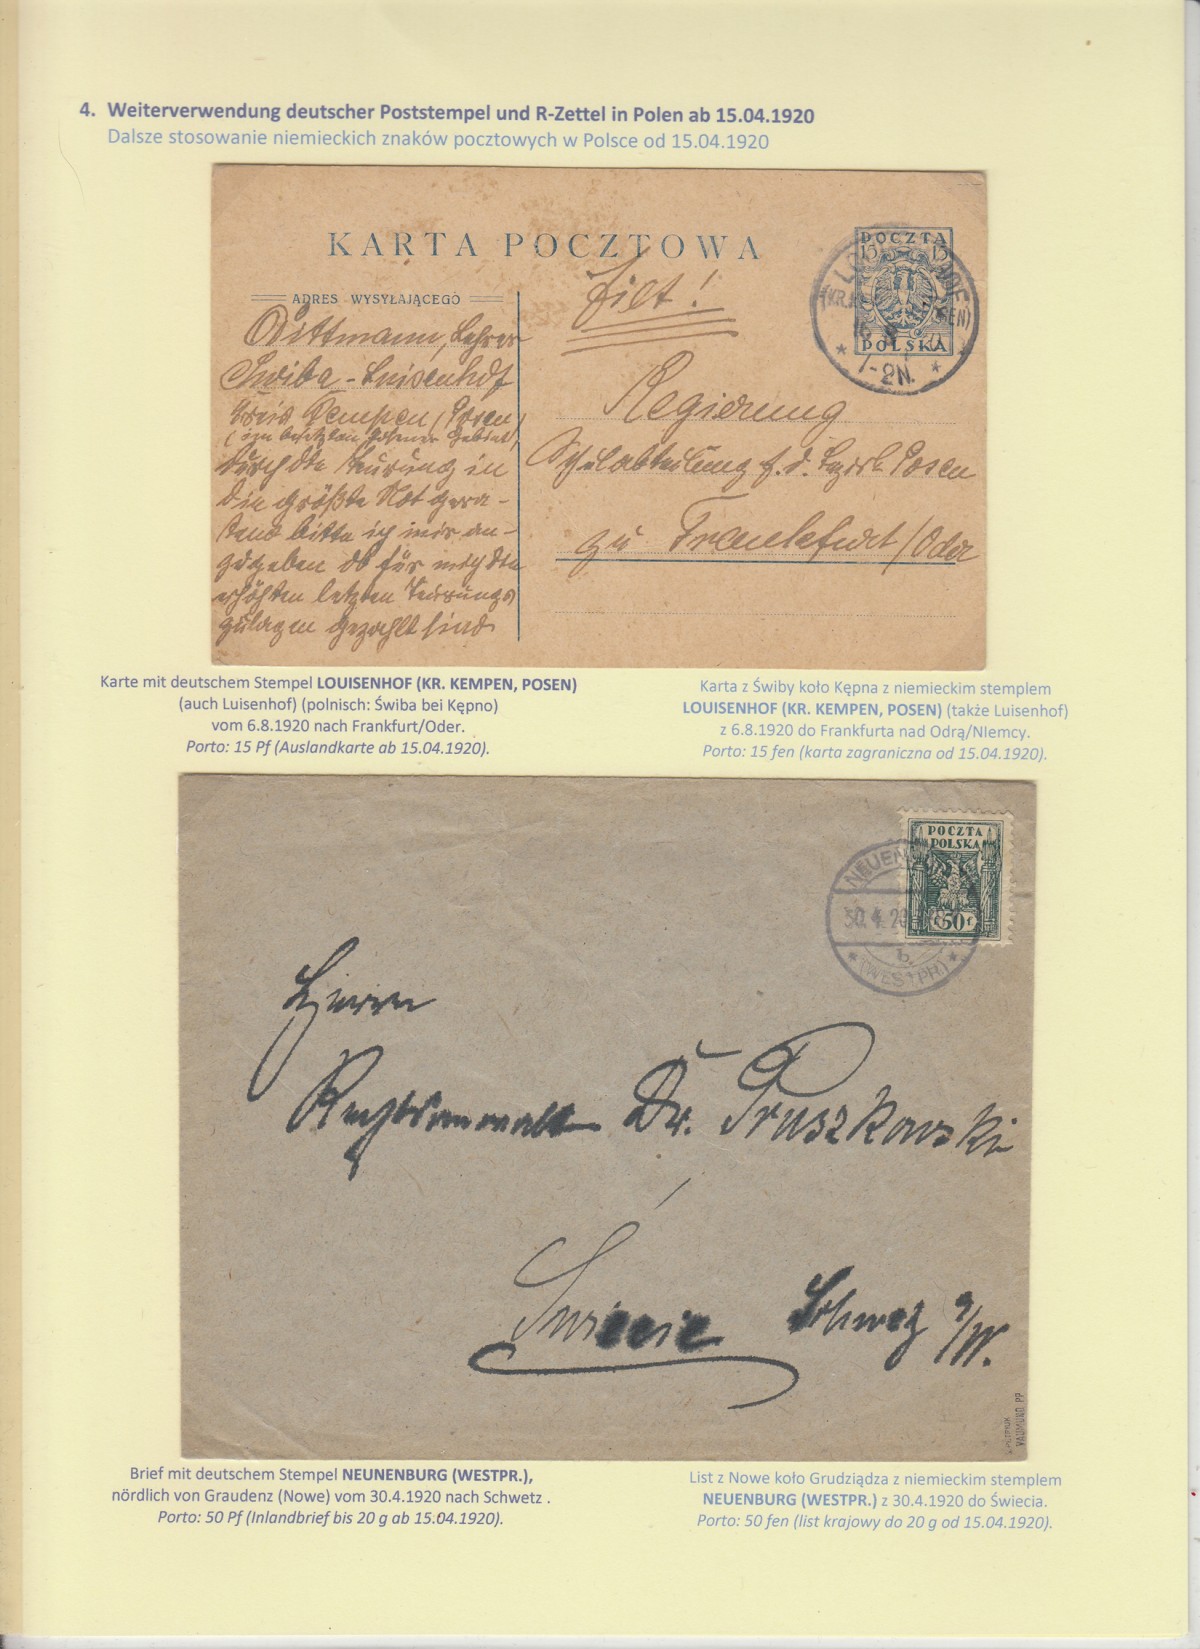 4. Weiterverwendung deutscher Poststempel und R-Zettel in Polen ab 15.04.1920
Dalsze stosowanie niemieckich znaków pocztowych w Polsce od 15.04.1920
KARTA POCZTOWA
POCZTA
15 15
POLSKA
1-2N.
ADRES WYSYŁAJĄCEGO
Eilt!
Dittmann, Lehrer
Swiba - Luisenhof
Kreis Kempen (Posen)
durch die Teurung in
die größte Not gera-
tend bitte ich mir an-
zugeben ob für mich die
erhöhten letzten Teurungs
zulagen gezahlt sind
Regierung
Schulabteilung f. d. Bezirk Posen
zu Frankfurt/Oder
Karte mit deutschem Stempel LOUISENHOF (KR. KEMPEN, POSEN)
(auch Luisenhof) (polnisch: Świba bei Kępno)
vom 6.8.1920 nach Frankfurt/Oder.
Porto: 15 Pf (Auslandkarte ab 15.04.1920).
Karta z Świby koło Kępna z niemieckim stemplem
LOUISENHOF (KR. KEMPEN, POSEN) (także Luisenhof)
z 6.8.1920 do Frankfurta nad Odrą/NIemcy.
Porto: 15 fen (karta zagraniczna od 15.04.1920).
POCZTA
POLSKA
50 f
30. 4. 20
b
* (WESTPR.) *
Herrn
Rechtsanwalt Dr. Pruszkowski
Swiecie Schwez a/W.
Brief mit deutschem Stempel NEUNENBURG (WESTPR.),
nördlich von Graudenz (Nowe) vom 30.4.1920 nach Schwetz .
Porto: 50 Pf (Inlandbrief bis 20 g ab 15.04.1920).
List z Nowe koło Grudziądza z niemieckim stemplem
NEUENBURG (WESTPR.) z 30.4.1920 do Świecia.
Porto: 50 fen (list krajowy do 20 g od 15.04.1920).